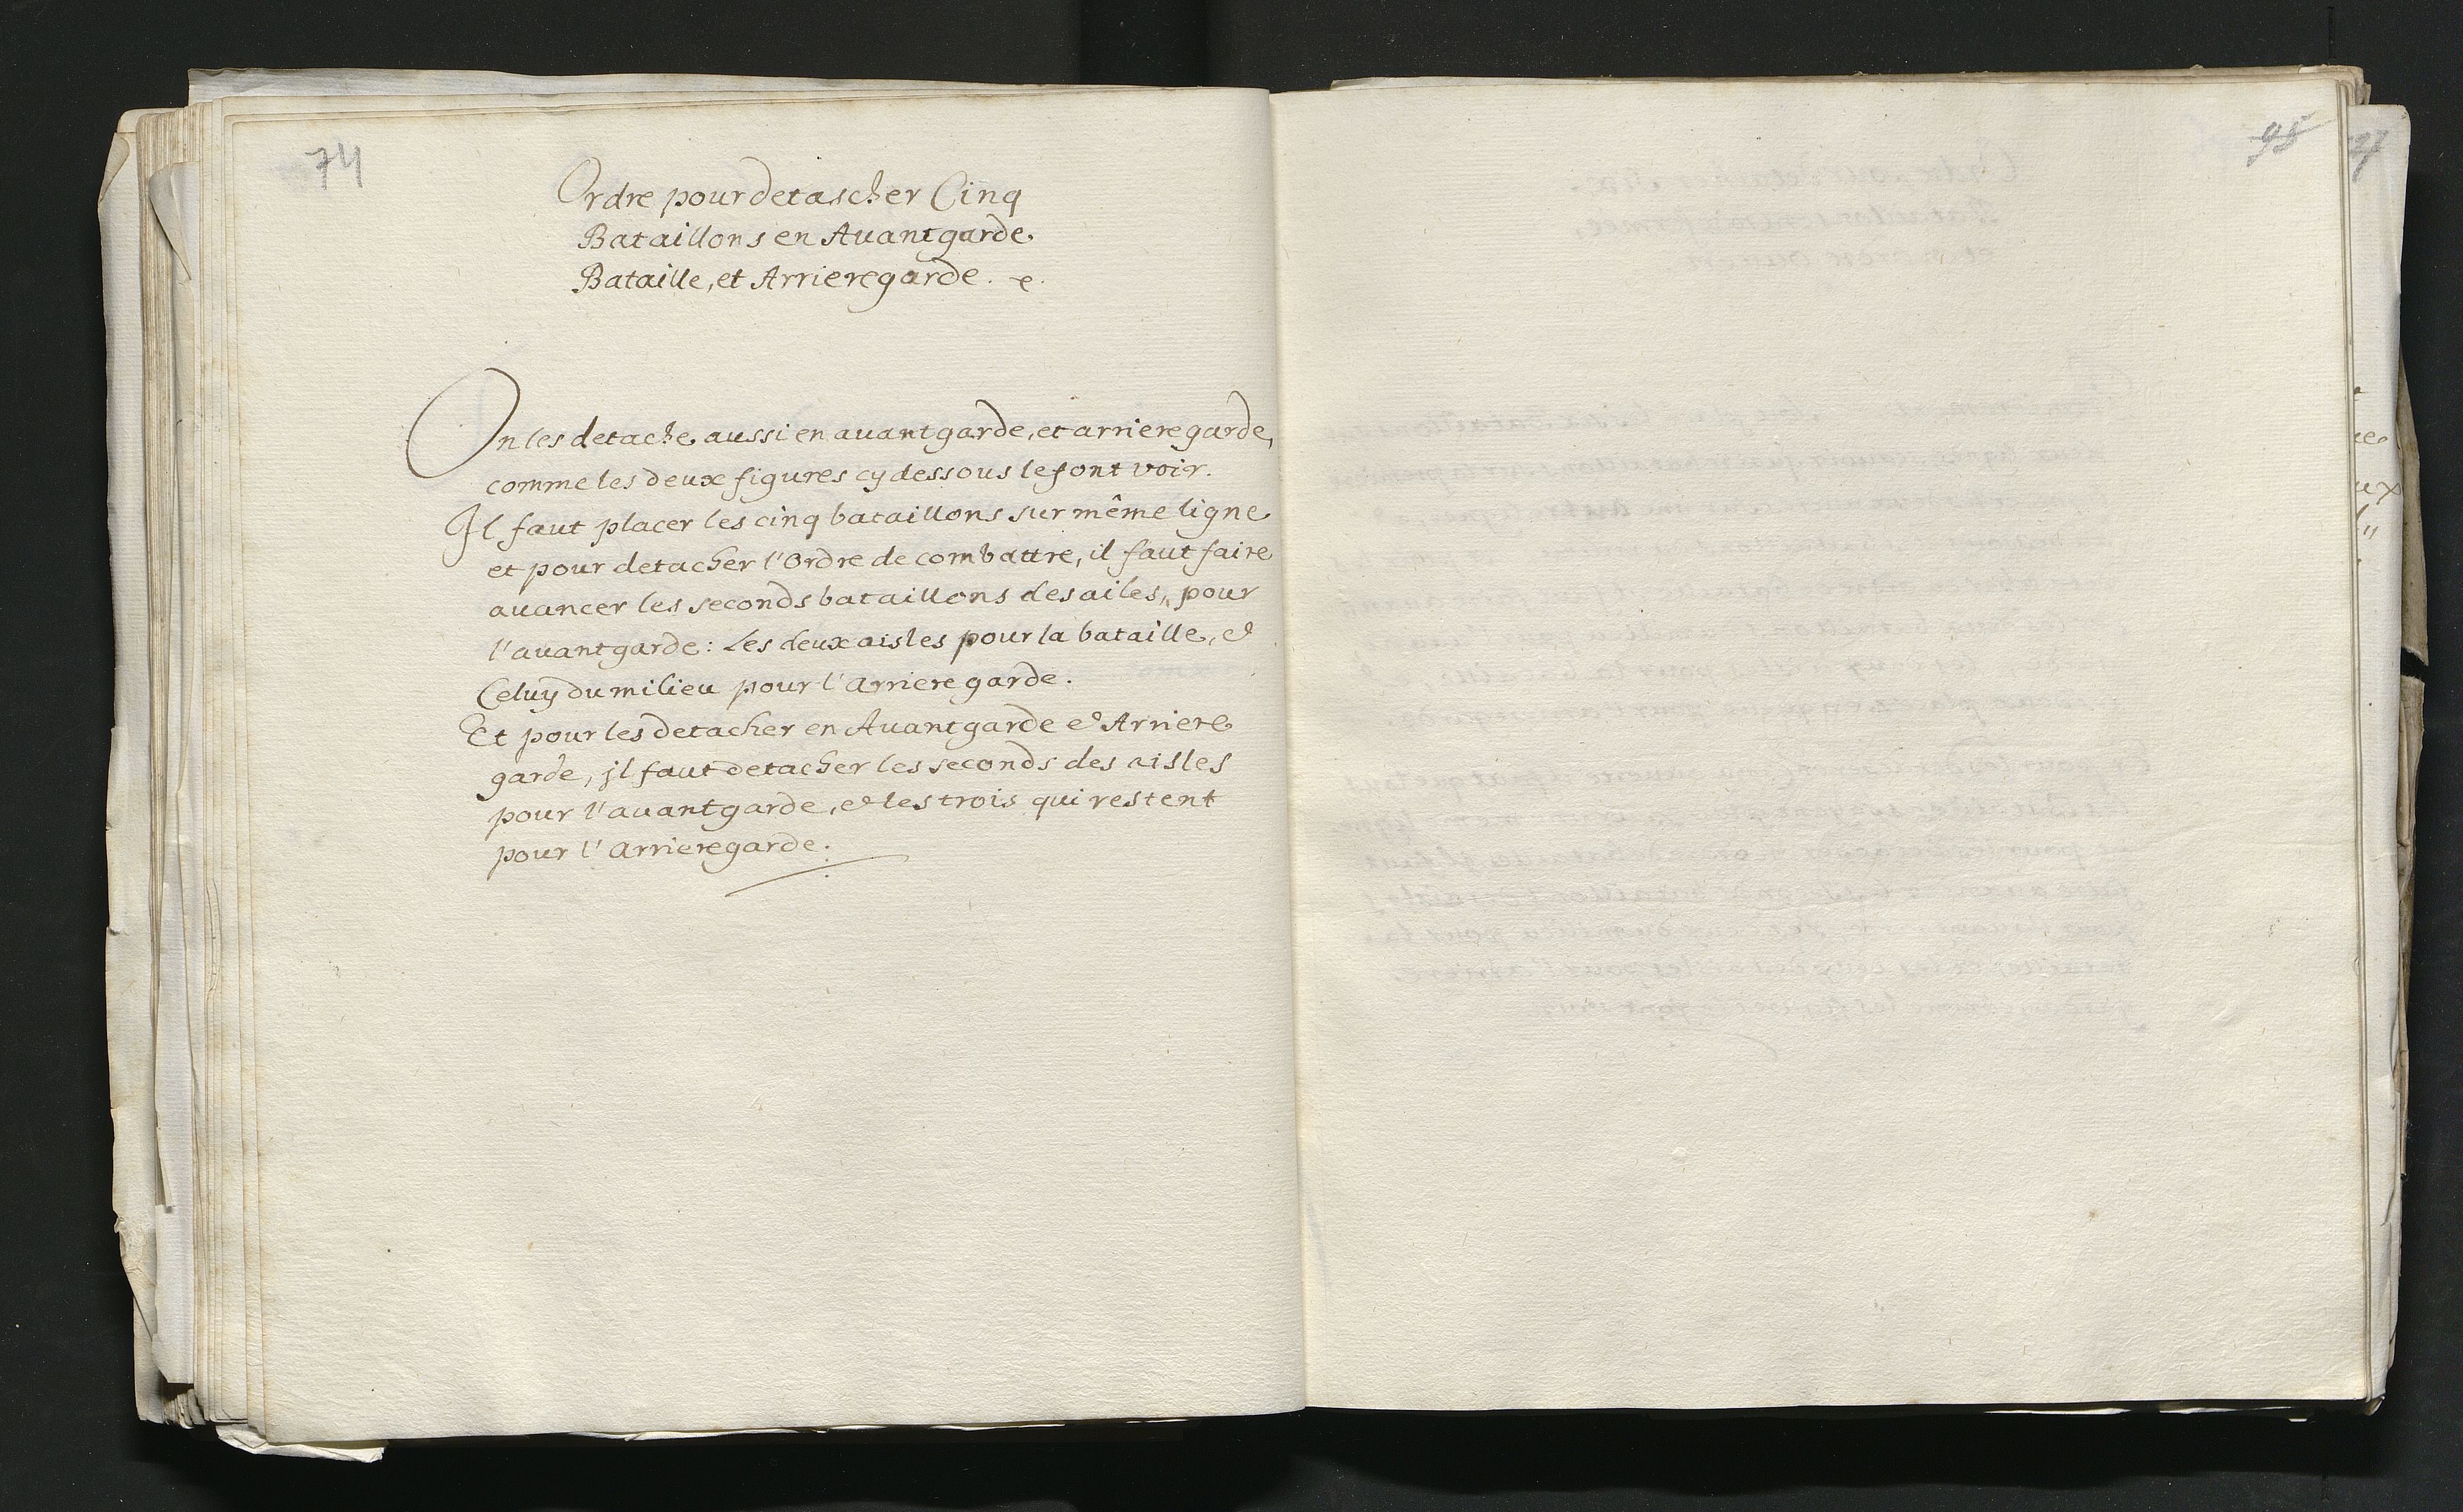 74
Ordre pour detascher Cinq
Bataillons en Auantgarde
Bataille, et Arrieregarde. e.
On les detache aussi en auantgarde, et arrieregarde,
comme les deux figures cy dessous le font voir.
Il faut placer les cinq bataillons sur même ligne
et pour detacher l'Ordre de combattre, il faut faire
auancer les seconds bataillons des ailes,, pour
l'auantgarde: Les deux aisles pour la bataille, et
Celuy du milieu pour l'Arrieregarde.
Et pour les detacher en Auantgarde et Arriere
garde, jl faut detacher les seconds des aisles
pour l'auantgarde, et les trois qui restent
pour l'Arrieregarde.
95